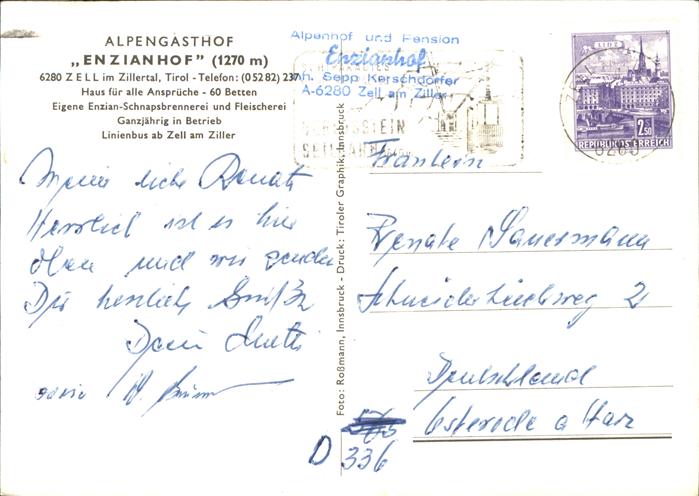 ALPENGASTHOF
„ENZIANHOF" (1270 m)
6280 ZELL im Zillertal, Tirol - Telefon: (05282) 237
Haus für alle Ansprüche - 60 Betten
Eigene Enzian-Schnapsbrennerei und Fleischerei
Ganzjährig in Betrieb
Linienbus ab Zell am Ziller
Alpenhof und Pension
Enzianhof
Inh. Sepp Kerschdorfer
A-6280 Zell am Ziller
LINZ
2.50
REPUBLIK ÖSTERREICH
6280
Meine liebe Renate
Herrlich ist es hier
oben und wir senden
Dir herzliche Grüße
Dein Mutti
sowie W.
Foto: Roßmann, Innsbruck - Druck: Tiroler Graphik, Innsbruck
Fräulein
Renate Sauermann
2
Deutschland
Osterode a Harz
D
336